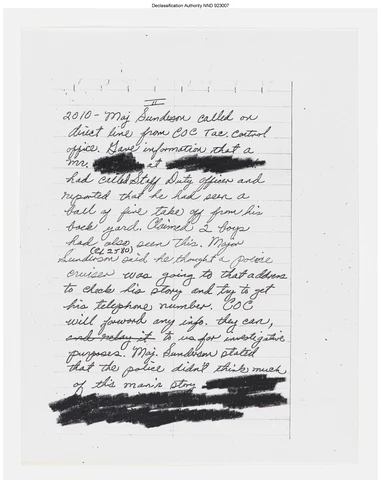 Declassification Authority NND 923007
II
2010 - Maj Sundeson called on
direct line from COC Tac. Control
office. Gave information that a
Mr. at
had called Staff Duty officer and
reported that he had seen a
ball of fire take off from his
back yard. Claimed 2 boys
had also seen this. Major
(Ex 2580)
Sunderson said he thought a police
cruiser was going to that address
to check his story and try to get
his telephone number. COC
will forward any info. they can,
and relay it to us for investigative
purposes. Maj. Sundeson stated
that the police didn't think much
of this man's story